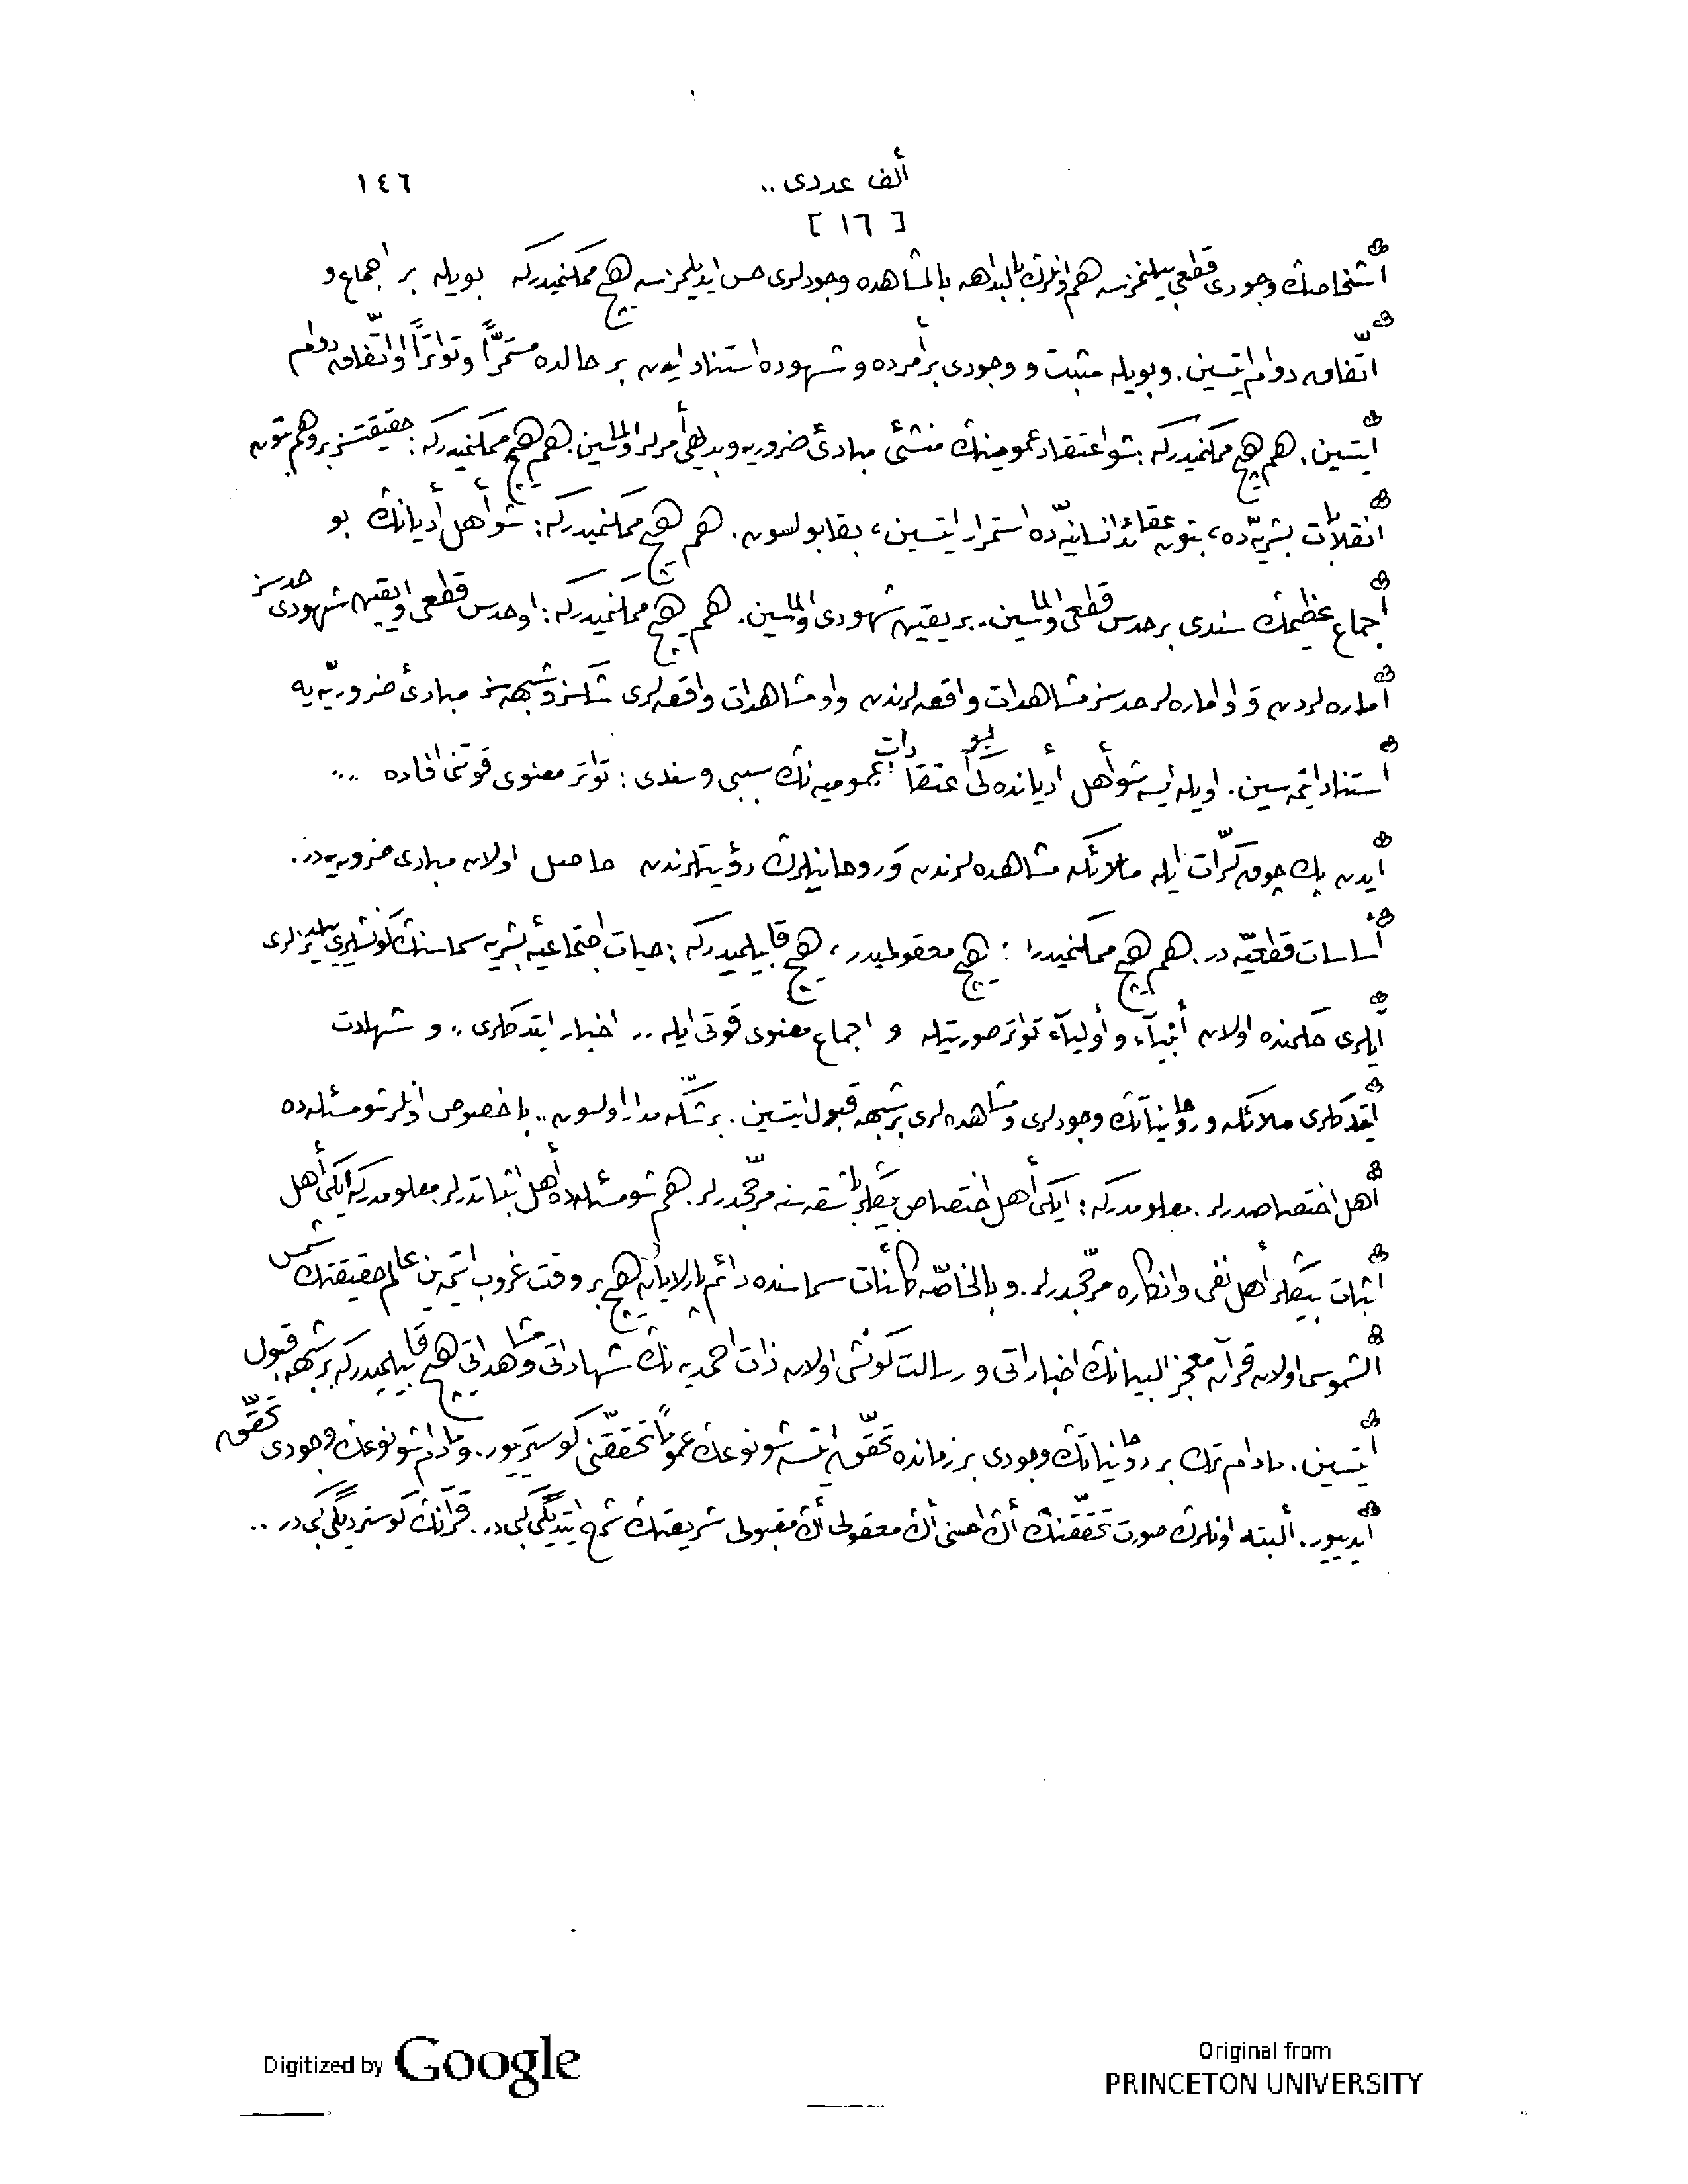 ألف عددى ..
١٤٦
[ ١٦ ]
اشخاصڭ وجودى قطعى بيلنمزسه هم اونلرڭ بالبداهه بالمشاهده وجودلرى حس ايديلمزسه هيچ ممكنميدركه بويله بر اجماع و
اتّفاق دوام ايتسين. وبويله مثبت و وجودى بر أمرده و شهوده استناد ايدن بر حالده مستمرًّا وتواترًا او اتّفاق دوام
ايتسين. هم هيچ ممكنميدركه: شو اعتقاد عمومينڭ منشئى مبادئ ضروريه وبديهى أمرلر اولماسين. هم هيچ ممكنميدركه: حقيقتسز بر وهم بتون
انقلابات بشريّه‌ده، بتون عقائد انسانيّه‌ده استمرار ايتسين، بقا بولسون. هم هيچ ممكنميدركه: شو أهل أديانڭ بو
اجماع عظيمڭ سندى بر حدس قطعى اولماسين. بر يقين شهودى اولماسين. هم هيچ ممكنميدركه: او حدس قطعى او يقين شهودى حدسز
أماره‌لردن و او اماره‌لر حدسز مشاهدات واقعه‌لرندن واو مشاهدات واقعه‌لرى شكسز وشبهه‌سز مبادئ ضروريّه‌يه
استناد ايتمه‌سين. اويله ايسه شو أهل أديانده‌كى بو اعتقادات عموميه‌نڭ سببى وسندى: تواتر معنوى قوتنى افاده ...
ايدن پك چوق كرّات ايله ملائكه مشاهده‌لرندن و روحانيلرڭ رؤيتلرندن حاصل اولان مبادئ ضروريه‌در.
أساسات قطعيّه‌در. هم هيچ ممكنميدر! هيچ معقولميدر، هيچ قابيلميدركه: حيات اجتماعيۀ بشريه سماسنڭ كونشلرى ييلديزلرى
آيلرى حكمنده اولان أنبيآء و أوليآء تواتر صورتيله و اجماع معنوى قوتى ايله .. اخبار ايتدكلرى .. و شهادت
ايتدكلرى ملائكه و روحانياتڭ وجودلرى و مشاهده‌لرى بر شبهه قبول ايتسين. بر شكّه مدار اولسون .. باخصوص اونلر شو مسئله‌ده
أهل اختصاصدرلر. معلومدركه: ايكى أهل اختصاص بيڭلر باشقه‌سنه مرجّحدرلر. هم شو مسئله‌ده أهل اثباتدرلر. معلومدركه ايكى أهل
اثبات بيڭلر أهل نفى و انكاره مرجّحدرلر. و بالخاصّه كائنات سماسنده دائم پارلايان هيچ بر وقت غروب ايتمه‌ين عالم حقيقتڭ شمس
الشموسى اولان قرآن معجز البيانڭ اخباراتى و رسالت كونشى اولان ذات احمديه نڭ شهاداتى و مشاهداتى هيچ قابيلميدركه بر شبهه قبول
ايتسين. مادام تك بر روحانياتڭ وجودى بر زمانده تحقّق ايتسه شو نوعڭ عموماً تحقّقنى كوستريور. ومادام شو نوعڭ وجودى تحقّق
ايدييور. ألبته اونلرڭ صورت تحقّقنڭ أڭ احسنى أڭ معقولى أڭ مقبولى شريعتڭ شرح ايتديگى كبى در. قرآنڭ كوسترديگى كبى در ..
Digitized by Google
Original from
PRINCETON UNIVERSITY